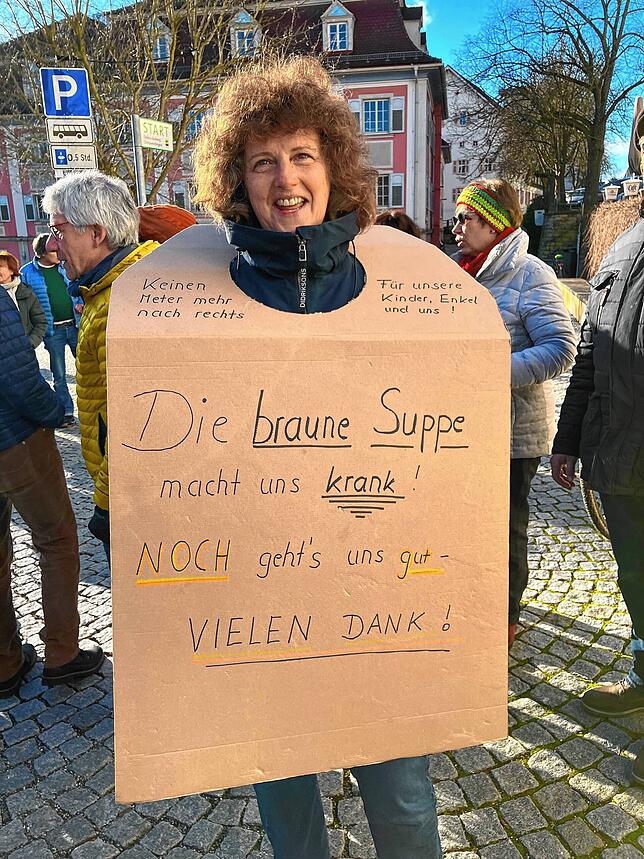 P
0,5 Std.
START
DIDRIKSONS
Keinen
Meter mehr
nach rechts
Für unsere
Kinder, Enkel
und uns !
Die braune Suppe
macht uns krank !
NOCH geht's uns gut -
VIELEN DANK !